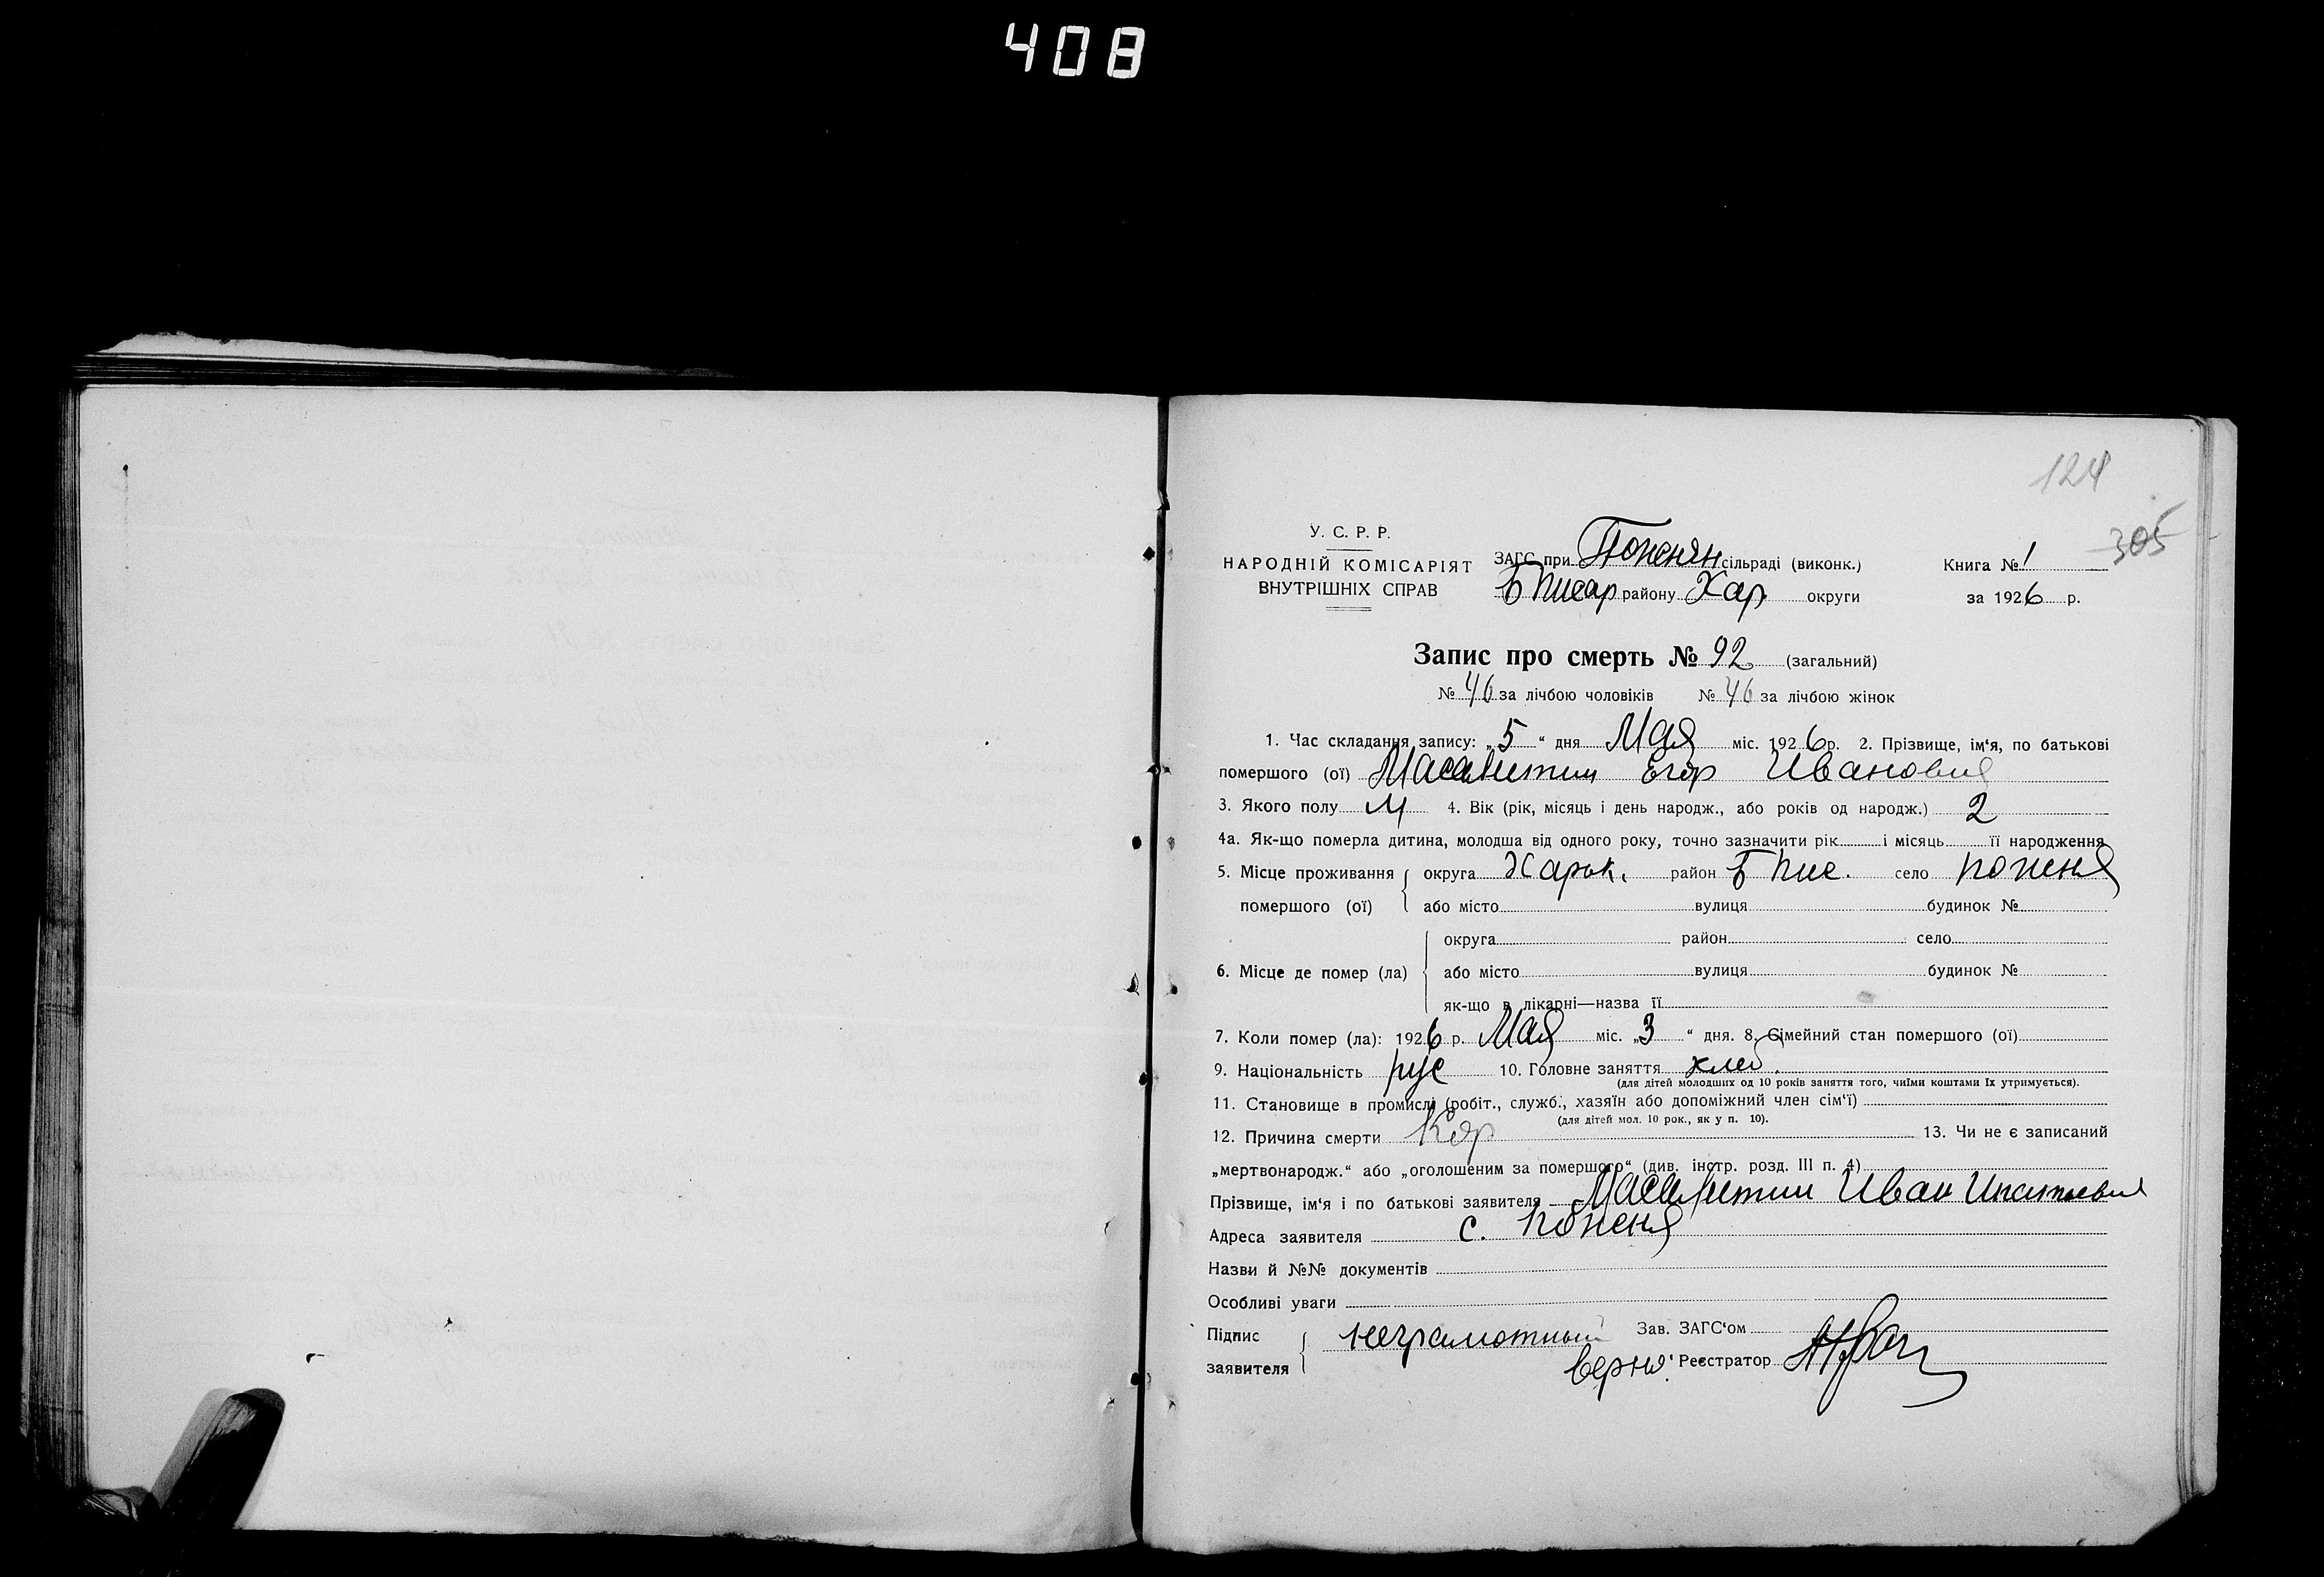 408
124
305
У. С. Р. Р.
НАРОДНІЙ КОМІСАРІЯТ
ВНУТРІШНІХ СПРАВ
ЗАГС при Поженян сільраді (виконк.) Книга № 1
Б Писар району Хар округи за 1926 р.
Запис про смерть № 92 (загальний)
№ 46 за лічбою чоловіків № 46 за лічбою жінок
1. Час складання запису: „5“ дня Мая міс. 1926 р. 2. Прізвище, ім‘я, по батькові
помершого (ої) Масалитин Егор Иванович
3. Якого полу М 4. Вік (рік, місяць і день народж., або років од народж.) 2
4а. Як-що померла дитина, молодша від одного року, точно зазначити рік і місяць її народження
5. Місце проживання округа Харьк. район Б Пис. село Поженя
помершого (ої) або місто вулиця будинок №
округа район село
6. Місце де помер (ла) або місто вулиця будинок №
як-що в лікарні—назва її
7. Коли помер (ла): 1926 р. Мая міс. „3“ дня. 8. Сімейний стан помершого (ої)
9. Національність рус 10. Головне заняття хлеб.
(для дітей молодших од 10 років заняття того, чиїми коштами їх утримується).
11. Становище в промислі (робіт., служб., хазяїн або допоміжний член сім‘ї)
(для дітей мол. 10 рок., як у п. 10).
12. Причина смерти Кор 13. Чи не є записаний
„мертвонародж.“ або „оголошеним за помершого“ (див. інстр. розд. III п. 4)
Прізвище, ім‘я і по батькові заявителя Масалитин Иван Ипатьевич
Адреса заявителя с. Поженя
Назви й №№ документів
Особливі уваги
Підпис
заявителя неграмотный Зав. ЗАГС‘ом
Верно: Реєстратор